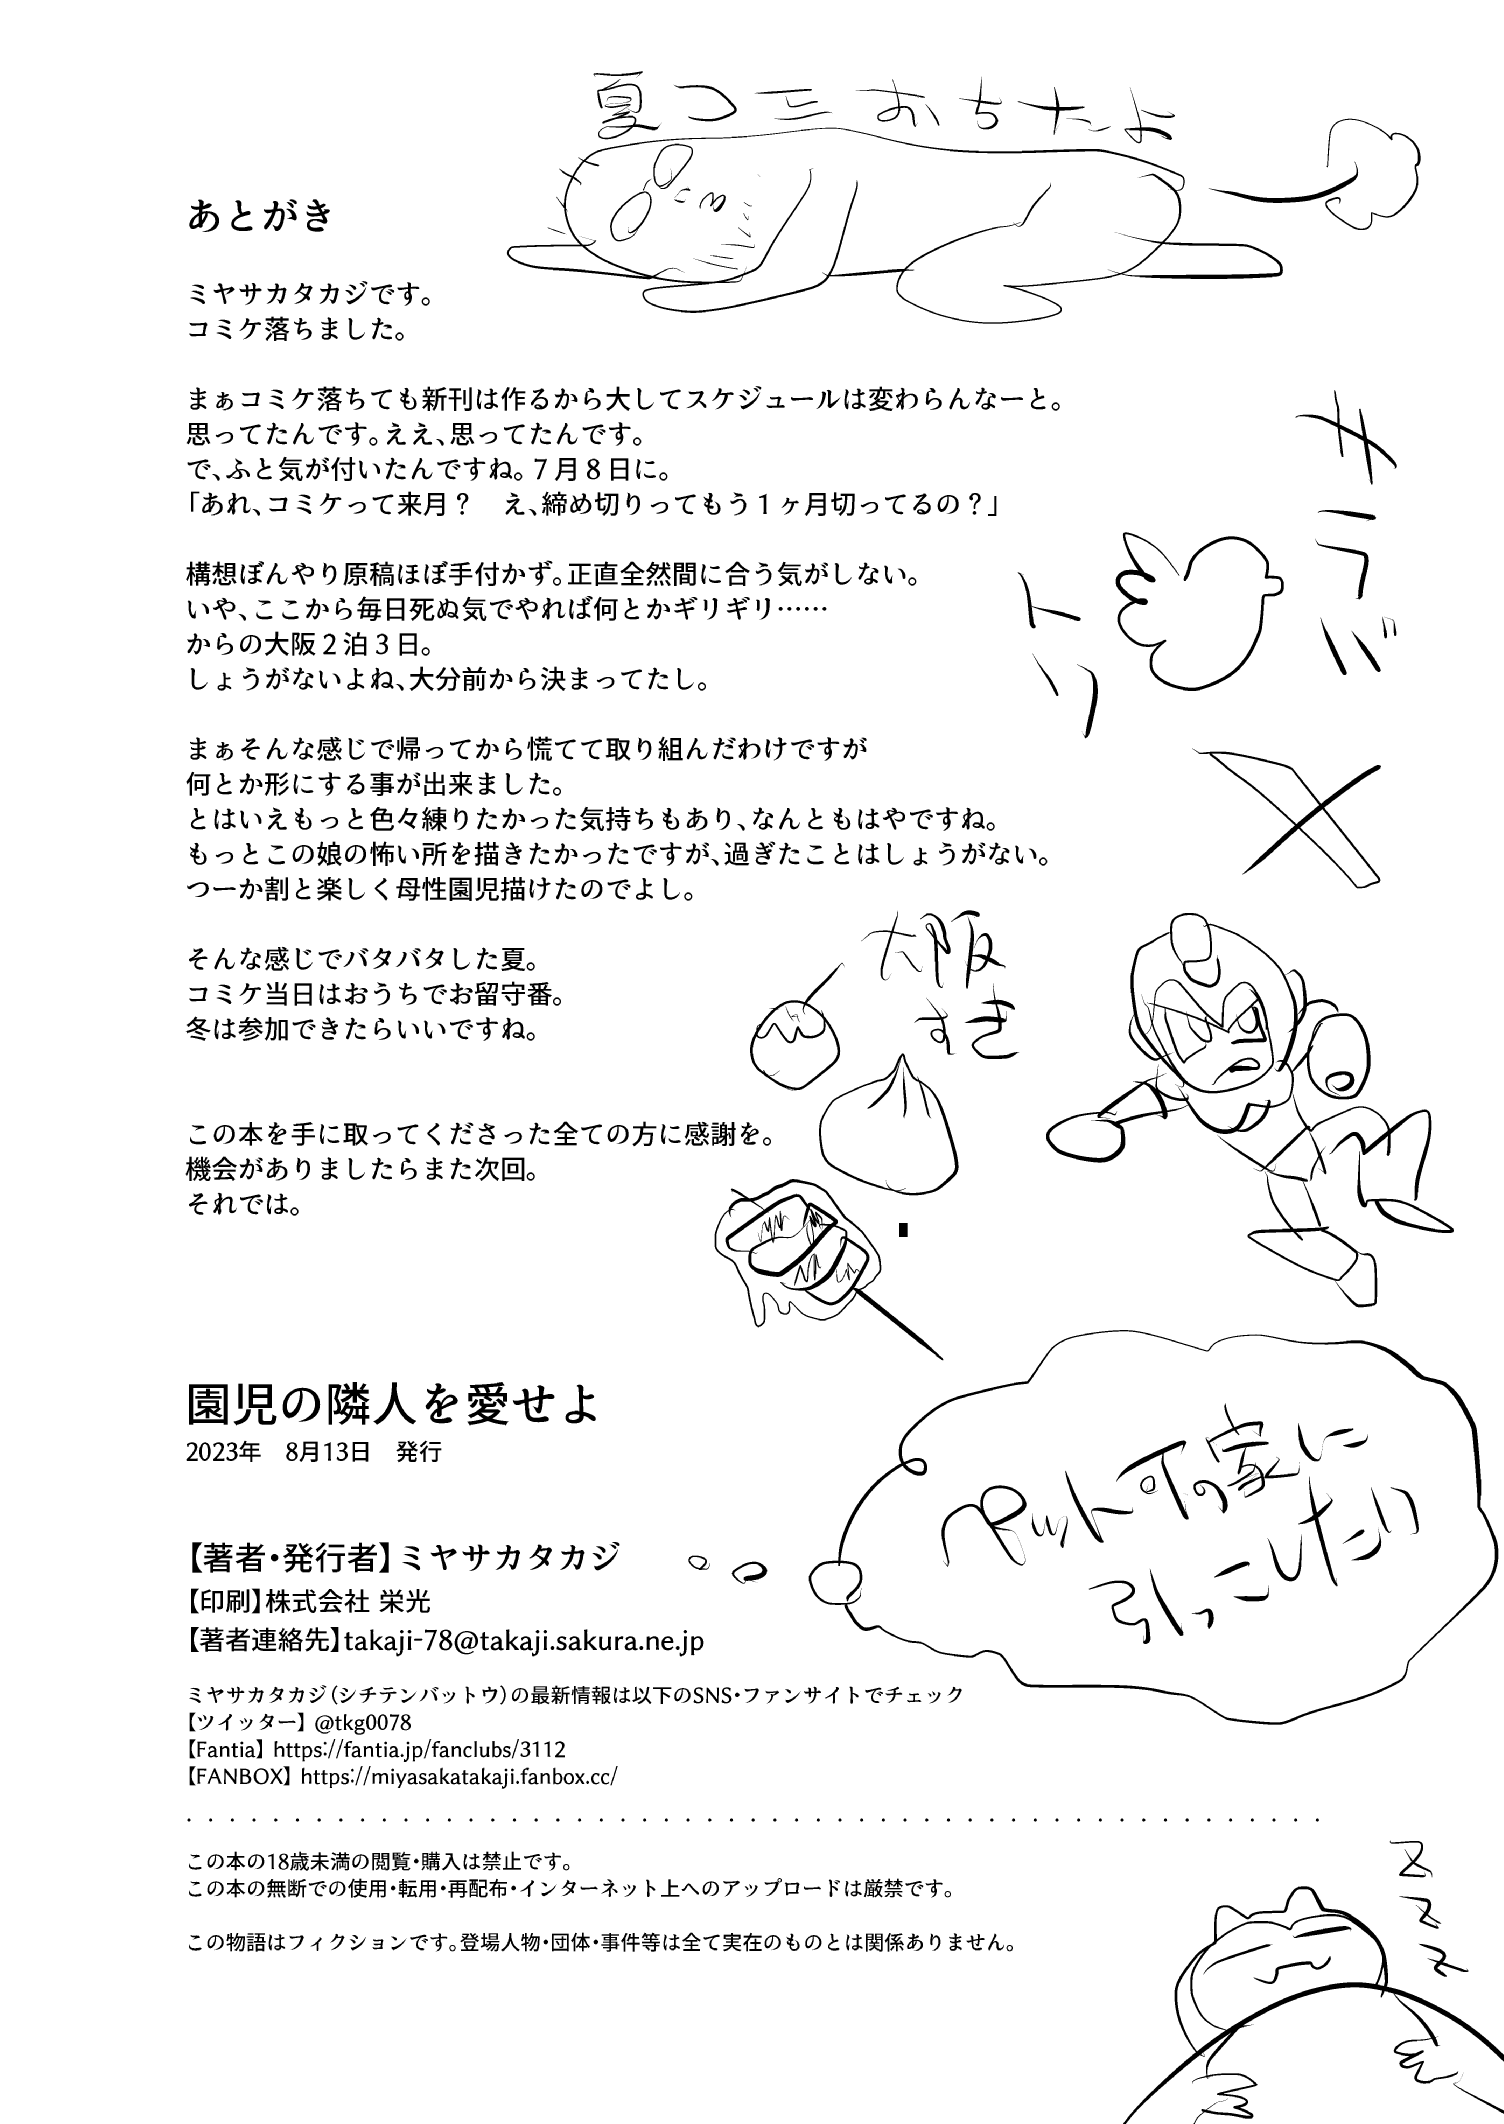 夏コミおちたよ
あとがき
ミヤサカタカジです。
コミケ落ちました。
まぁコミケ落ちても新刊は作るから大してスケジュールは変わらんなーと。
思ってたんです。ええ、思ってたんです。
で、ふと気が付いたんですね。７月８日に。
「あれ、コミケって来月？　え、締め切りってもう１ヶ月切ってるの？」
構想ぼんやり原稿ほぼ手付かず。正直全然間に合う気がしない。
いや、ここから毎日死ぬ気でやれば何とかギリギリ……
からの大阪２泊３日。
しょうがないよね、大分前から決まってたし。
まぁそんな感じで帰ってから慌てて取り組んだわけですが
何とか形にする事が出来ました。
とはいえもっと色々練りたかった気持ちもあり、なんともはやですね。
もっとこの娘の怖い所を描きたかったですが、過ぎたことはしょうがない。
つーか割と楽しく母性園児描けたのでよし。
そんな感じでバタバタした夏。
コミケ当日はおうちでお留守番。
冬は参加できたらいいですね。
この本を手に取ってくださった全ての方に感謝を。
機会がありましたらまた次回。
それでは。
サラバ
トリ
X
大阪
すき
ペット可の家に
引っこしたい
園児の隣人を愛せよ
2023年　8月13日　発行
【著者・発行者】ミヤサカタカジ
【印刷】株式会社 栄光
【著者連絡先】takaji-78@takaji.sakura.ne.jp
ミヤサカタカジ（シチテンバットウ）の最新情報は以下のSNS・ファンサイトでチェック
【ツイッター】 @tkg0078
【Fantia】 https://fantia.jp/fanclubs/3112
【FANBOX】 https://miyasakatakaji.fanbox.cc/
この本の18歳未満の閲覧・購入は禁止です。
この本の無断での使用・転用・再配布・インターネット上へのアップロードは厳禁です。
この物語はフィクションです。登場人物・団体・事件等は全て実在のものとは関係ありません。
Z
Z
Z